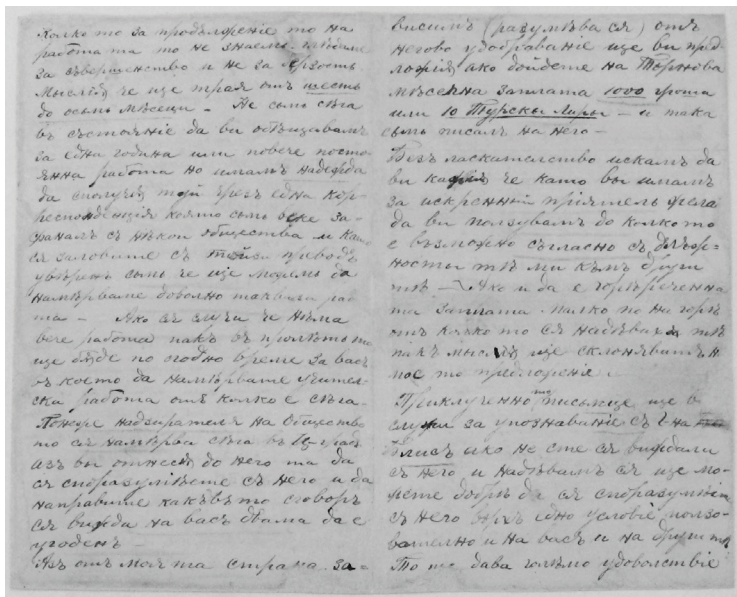 Колко то за продължение то на
работа та то не знаемъ. Гледаме
за съвершенство и не за бързость
Мыслѭ че ще трая отъ шесть
до осьмь мѣсеци – Не съмъ сѣга
въ състоянiе да ви обѣщавамъ
за една година или повече посто-
янна работа но имамъ надежда
да сполучѭ той чрезъ една кор-
респонденцiя която съмъ веке за-
фаналъ съ нѣкои общества и като
ся заловиме съ тойзи преводъ
увѣренъ съмъ че ще можемъ да
намѣрваме доволно таквази рабо
та – Ако ся случи че нѣма
вече работа пакъ въ пролѣтьта
ще бѫде по огодно време за васъ
въ което да намѣрвате учител-
ска работа отъ колко е сѣга.
Понеже надзирателя на Общество
то ся намѣрва сѣга въ Ц-градъ
азъ вы отнесѭ до него та да
ся споразумѣете съ него и да
направите какъвъто сговоръ
ся вижда на васъ двама да е
угоденъ –
Азъ отъ моя та страна за-
висимъ (разумѣва ся) отъ
негово удоброванiе ще ви пред-
ложѭ, ако дойдете на Торнова
мѣсечна заплата 1000 гроша
или 10 Турскы Лиры – и така
съмъ писалъ на него –
Безъ ласкателство искамъ да
ви кажѭ че като вы имамъ
за искреннiй прiятель щеза
да ви ползувамъ до колкото
е възможно съгласно съ длъж-
ностьi тѣ ми къмъ други
тѣ – Ако и да е горѣреченна
та заплата малко по на горѣ
отъ колко то ся надѣвахъ тѣ
пакъ мыслѭ ще склонявитъ н
мое то предложенiе.
Приключенно то письмце ще в
служи за упознаванiе съ Г-на
Блисъ ако не сте ся виждали
съ него и надѣвамъ ся ще мо-
жете добрѣ да ся споразумѣйте
съ него върхъ едно условiе, полз-
вателно и на васъ и на други тѣ
То ще дава голѣмо удоволствiе